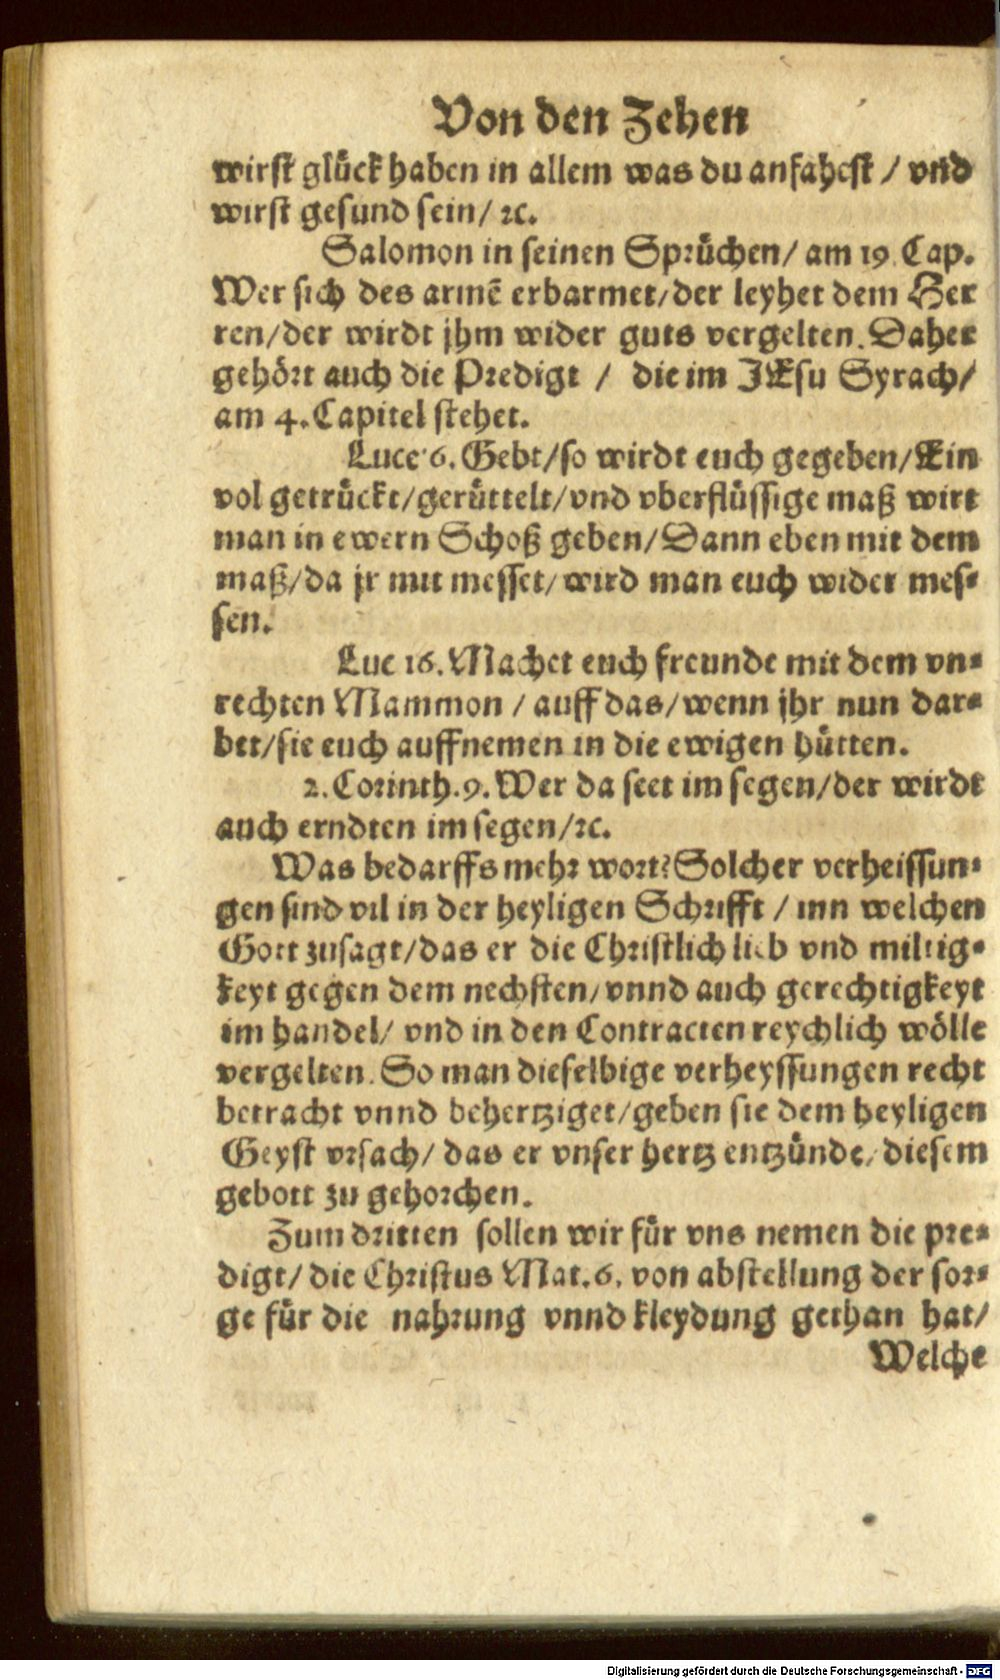 Von den Zehen
wirst glück haben in allem was du anfahest / vnd
wirst gesund sein / ꝛc.
Salomon in seinen Sprüchen / am 19. Cap.
Wer sich des armẽ erbarmet / der leyhet dem Her
ren / der wirdt jhm wider guts vergelten. Daher
gehört auch die Predigt / die im JEsu Syrach /
am 4. Capitel stehet.
Luce 6. Gebt / so wirdt euch gegeben / Ein
vol getrückt / gerüttelt / vnd vberflüssige maß wirt
man in ewern Schoß geben / Dann eben mit dem
maß / da jr mit messet / wird man euch wider mes-
sen.
Luc 16. Machet euch freunde mit dem vn-
rechten Mammon / auff das / wenn jhr nun dar-
bet / sie euch auffnemen in die ewigen hütten.
2. Corinth. 9. Wer da seet im segen / der wirdt
auch erndten im segen / ꝛc.
Was bedarffs mehr wort? Solcher verheissun-
gen sind vil in der heyligen Schrifft / inn welchen
Gott zusagt / das er die Christlich lieb vnd miltig-
keyt gegen dem nechsten / vnnd auch gerechtigkeyt
im handel / vnd in den Contracten reychlich wölle
vergelten. So man dieselbige verheyssungen recht
betracht vnnd behertziget / geben sie dem heyligen
Geyst vrsach / das er vnser hertz entzünde / diesem
gebott zu gehorchen.
Zum dritten sollen wir für vns nemen die pre-
digt / die Christus Mat. 6. von abstellung der sor-
ge für die nahrung vnnd kleydung gethan hat /
Welche
Digitalisierung gefördert durch die Deutsche Forschungsgemeinschaft - DFG